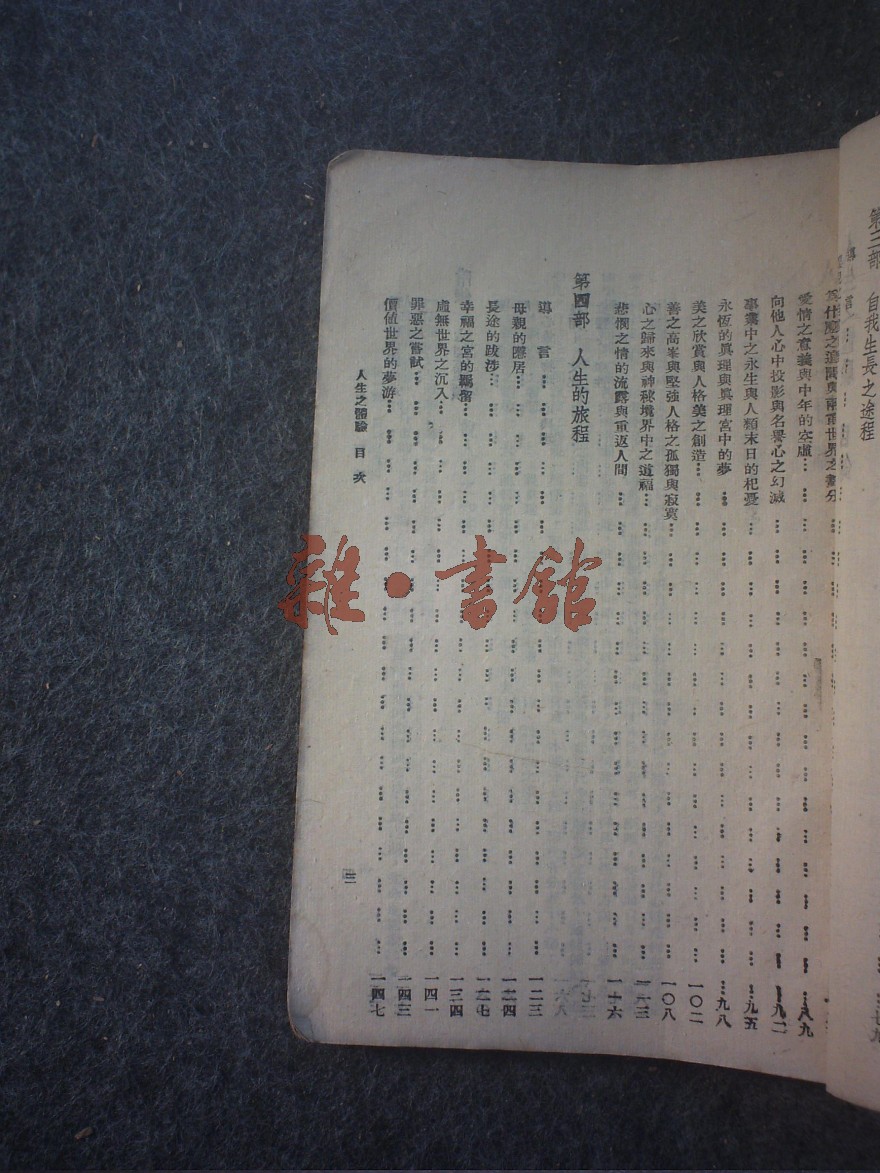 第三部　自我生長之途程
愛情之意義與中年的空虛………八九
向他人心中投影與名譽心之幻滅………九二
事業中之永生與人類末日的杞憂………九五
永恆的眞理與眞理宮中的夢………九八
美之欣賞與人格美之創造………一〇二
善之高峯與堅強人格之孤獨與寂寞………一〇八
心之歸來與神秘境界中之道福………一一三
悲憫之情的流露與重返人間………一十六
第四部　人生的旅程
導　言………一二三
母親的隱居………一二四
長途的跋涉………一二七
幸福之宮的羈留………一三四
虛無世界之沉入………一四一
罪惡之嘗試………一四三
價値世界的夢游………一四七
人生之體驗　目次
雜·書館